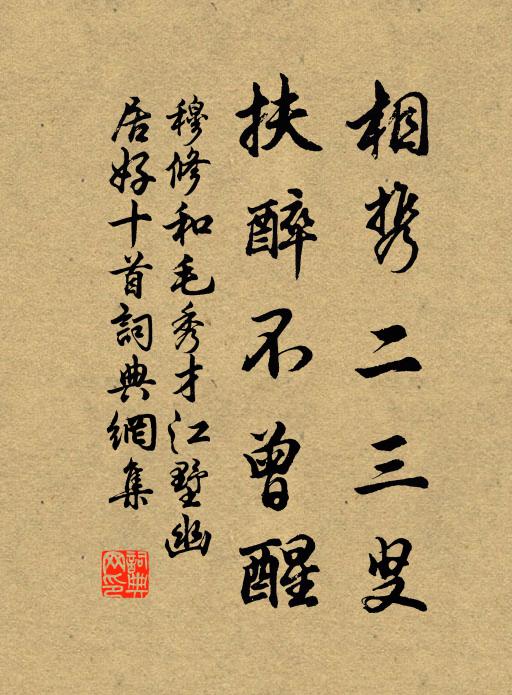 相携二三叟
扶醉不曾醒
穆修和毛秀才江墅幽
居好十首詞典網集
詞典网印